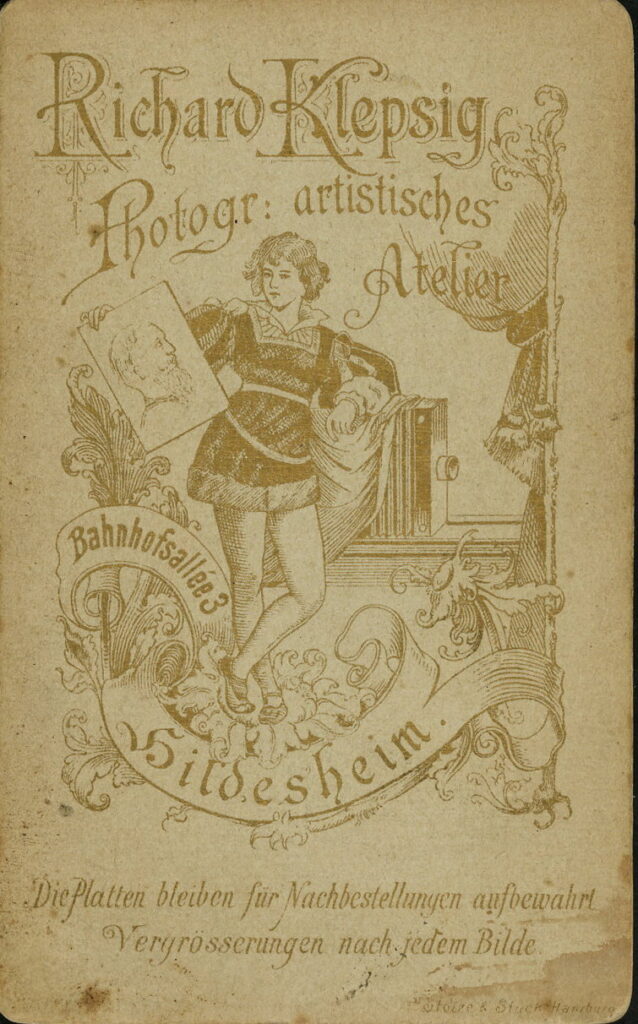 Richard Klepsig
Photogr: artistisches
Atelier
Bahnhofsallée 3
Hildesheim.
Die Platten bleiben für Nachbestellungen aufbewahrt
Vergrösserungen nach jedem Bilde
& Stück Hamburg